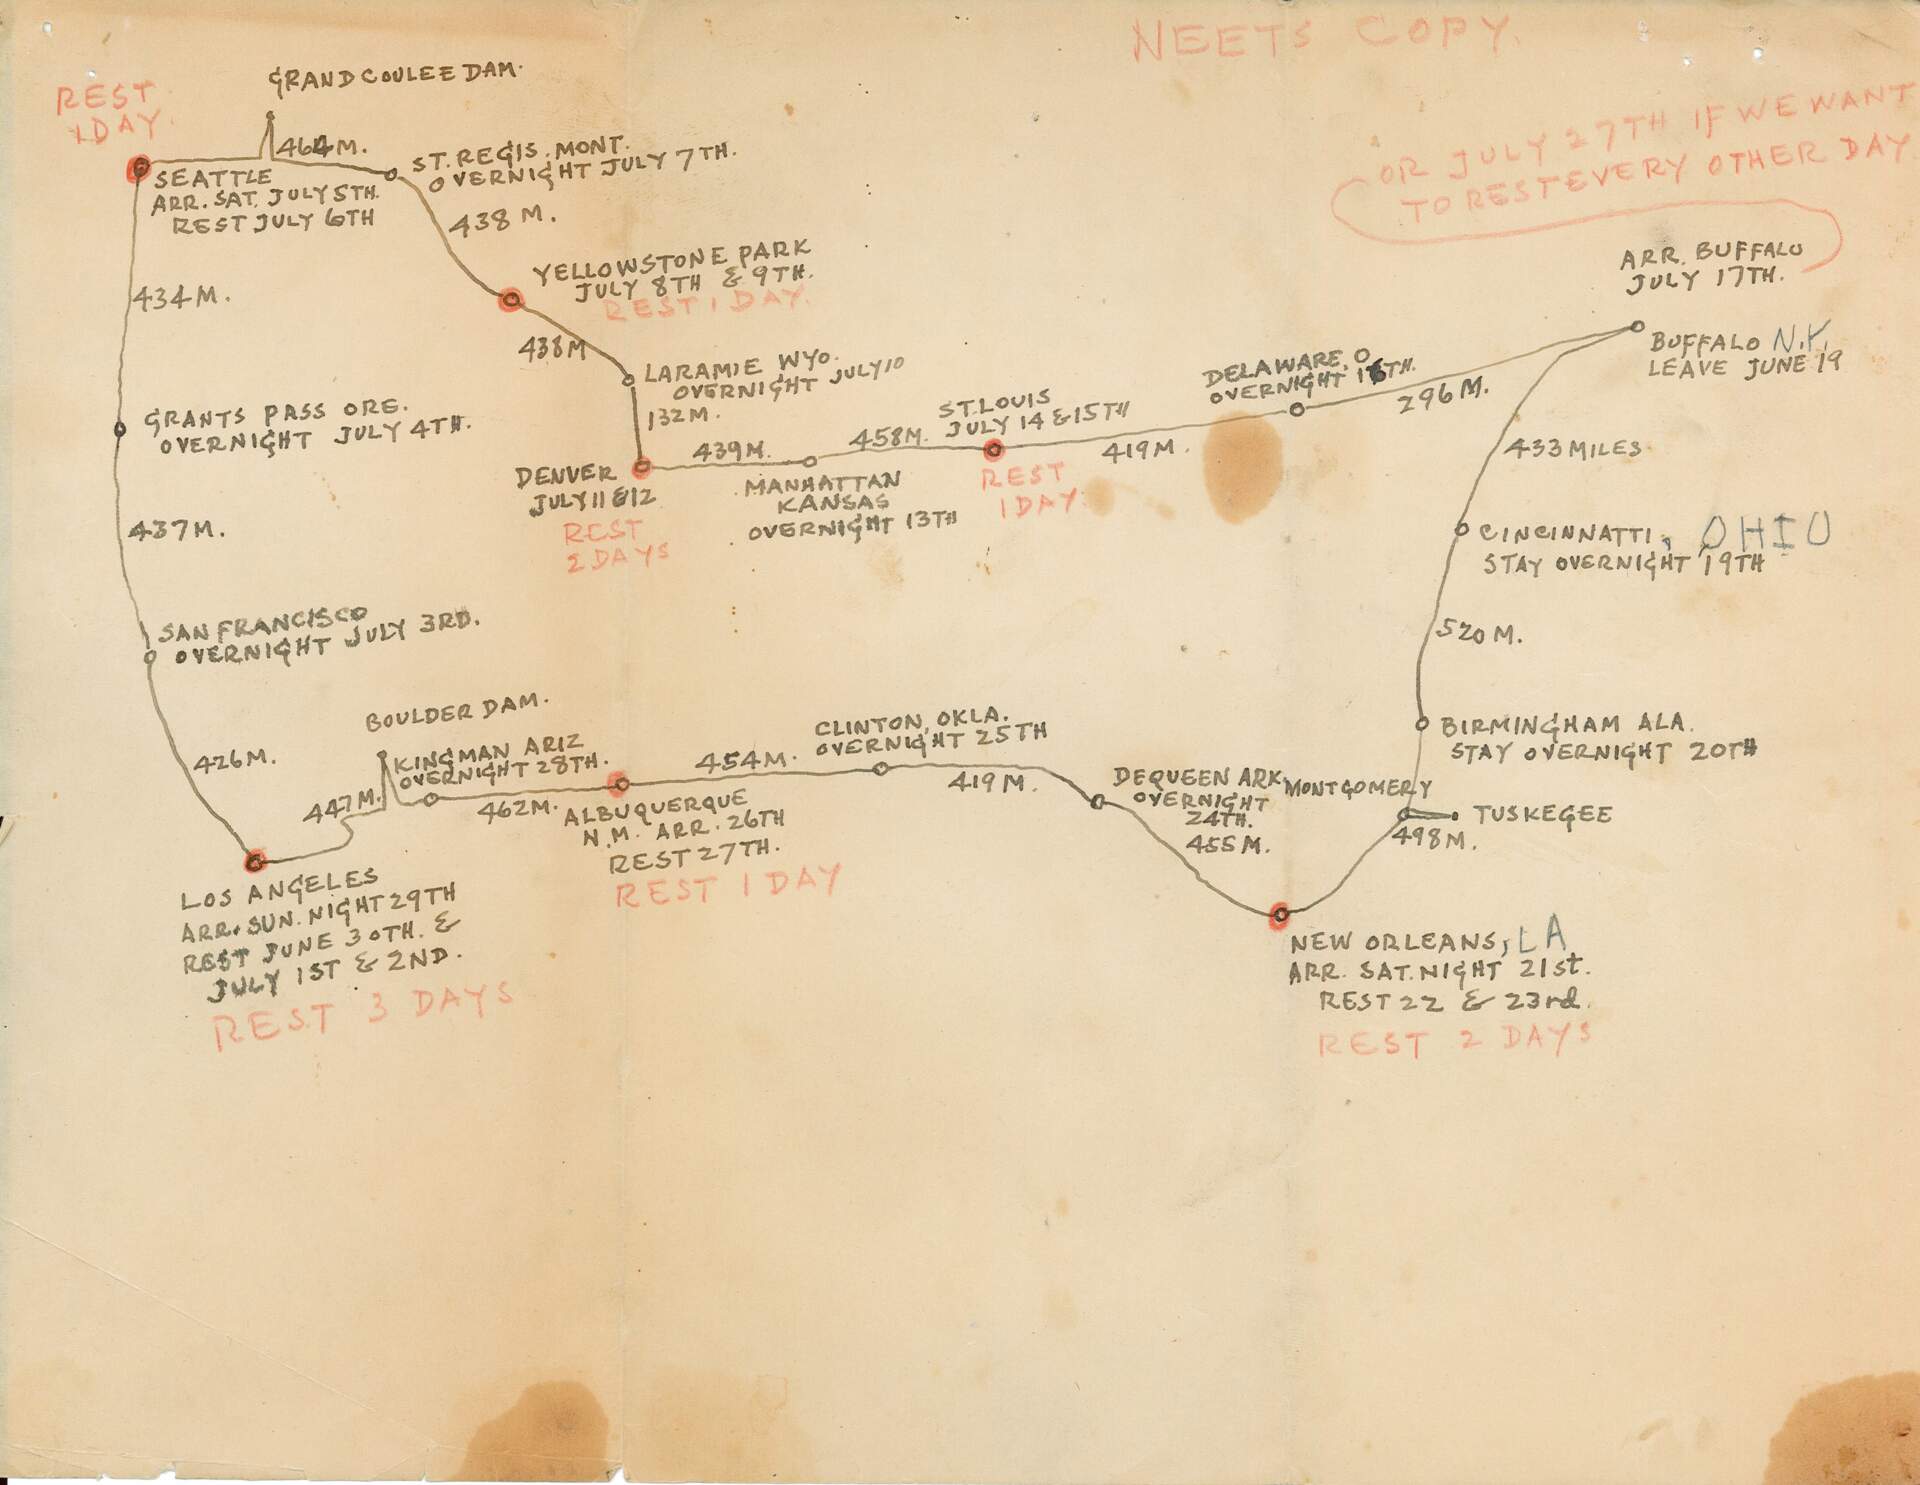 NEETS COPY.
OR JULY 27TH IF WE WANT
TO REST EVERY OTHER DAY.
ARR. BUFFALO
JULY 17TH.
BUFFALO N.Y.
LEAVE JUNE 19
433 MILES
CINCINNATTI, OHIO
STAY OVERNIGHT 19TH
520 M.
BIRMINGHAM ALA.
STAY OVERNIGHT 20TH
MONTGOMERY
TUSKEGEE
498 M.
NEW ORLEANS, LA
ARR. SAT. NIGHT 21st.
REST 22 & 23rd.
REST 2 DAYS
455 M.
DEQUEEN ARK.
OVERNIGHT
24TH.
419 M.
CLINTON, OKLA.
OVERNIGHT 25TH
454 M.
ALBUQUERQUE
N.M. ARR. 26TH
REST 27TH.
REST 1 DAY
462 M.
KINGMAN ARIZ
OVERNIGHT 28TH.
BOULDER DAM.
447 M.
LOS ANGELES
ARR. SUN. NIGHT 29TH
REST JUNE 30TH. &
JULY 1ST & 2ND.
REST 3 DAYS
426 M.
SAN FRANCISCO
OVERNIGHT JULY 3RD.
437 M.
GRANTS PASS ORE.
OVERNIGHT JULY 4TH.
434 M.
REST
1 DAY.
SEATTLE
ARR. SAT. JULY 5TH.
REST JULY 6TH
GRAND COULEE DAM.
464 M.
ST. REGIS. MONT.
OVERNIGHT JULY 7TH.
438 M.
YELLOWSTONE PARK
JULY 8TH & 9TH.
REST 1 DAY.
438 M
LARAMIE WYO.
OVERNIGHT JULY 10
132 M.
DENVER
JULY 11 & 12
REST
2 DAYS
439 M.
MANHATTAN
KANSAS
OVERNIGHT 13TH
458 M.
ST. LOUIS
JULY 14 & 15TH
REST
1 DAY
419 M.
DELAWARE, O.
OVERNIGHT 16TH.
296 M.